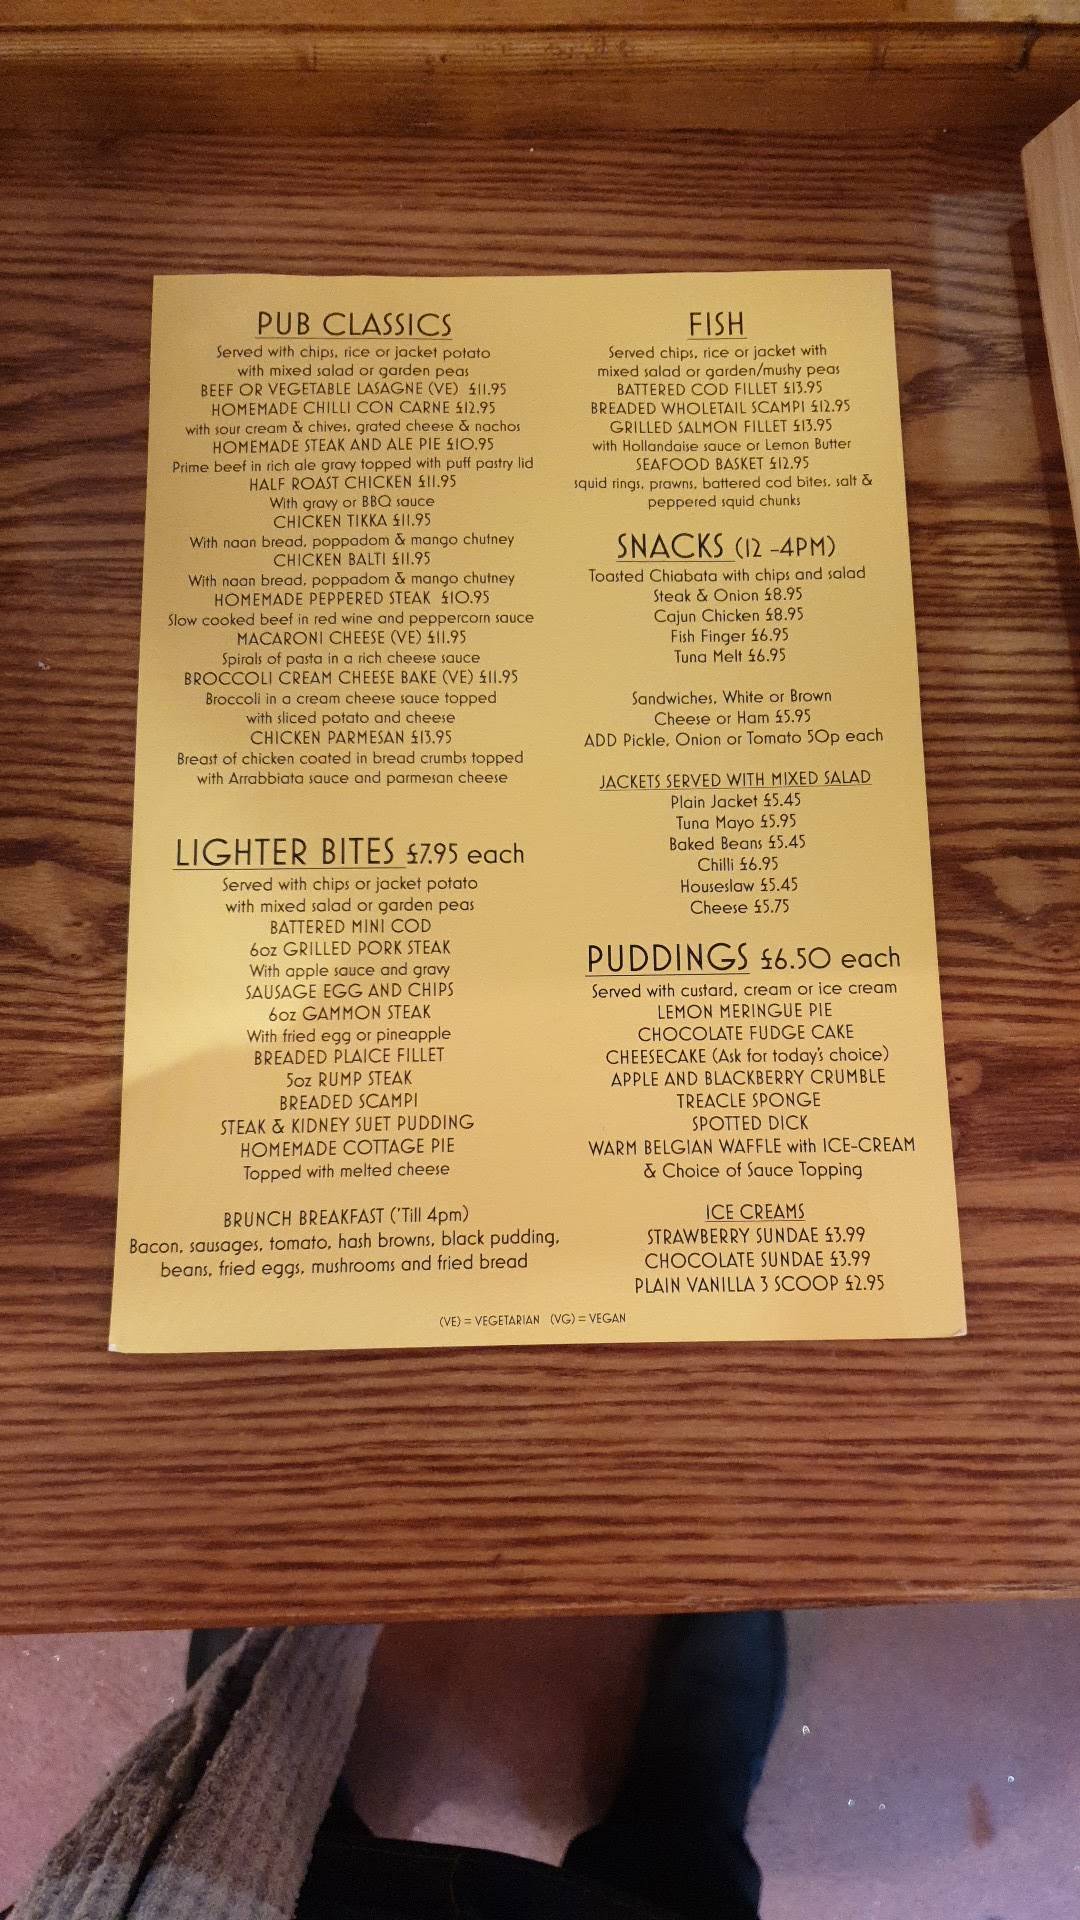 PUB CLASSICS
Served with chips, rice or jacket potato
with mixed salad or garden peas
BEEF OR VEGETABLE LASAGNE (VE) £11.95
HOMEMADE CHILLI CON CARNE £12.95
with sour cream & chives, grated cheese & nachos
HOMEMADE STEAK AND ALE PIE £10.95
Prime beef in rich ale gravy topped with puff pastry lid
HALF ROAST CHICKEN £11.95
With gravy or BBQ sauce
CHICKEN TIKKA £11.95
With naan bread, poppadom & mango chutney
CHICKEN BALTI £11.95
With naan bread, poppadom & mango chutney
HOMEMADE PEPPERED STEAK £10.95
Slow cooked beef in red wine and peppercorn sauce
MACARONI CHEESE (VE) £11.95
Spirals of pasta in a rich cheese sauce
BROCCOLI CREAM CHEESE BAKE (VE) £11.95
Broccoli in a cream cheese sauce topped
with sliced potato and cheese
CHICKEN PARMESAN £13.95
Breast of chicken coated in bread crumbs topped
with Arrabbiata sauce and parmesan cheese
LIGHTER BITES £7.95 each
Served with chips or jacket potato
with mixed salad or garden peas
BATTERED MINI COD
6oz GRILLED PORK STEAK
With apple sauce and gravy
SAUSAGE EGG AND CHIPS
6oz GAMMON STEAK
With fried egg or pineapple
BREADED PLAICE FILLET
5oz RUMP STEAK
BREADED SCAMPI
STEAK & KIDNEY SUET PUDDING
HOMEMADE COTTAGE PIE
Topped with melted cheese
BRUNCH BREAKFAST ('Till 4pm)
Bacon, sausages, tomato, hash browns, black pudding,
beans, fried eggs, mushrooms and fried bread
FISH
Served chips, rice or jacket with
mixed salad or garden/mushy peas
BATTERED COD FILLET £13.95
BREADED WHOLETAIL SCAMPI £12.95
GRILLED SALMON FILLET £13.95
with Hollandaise sauce or Lemon Butter
SEAFOOD BASKET £12.95
squid rings, prawns, battered cod bites, salt &
peppered squid chunks
SNACKS (12 -4PM)
Toasted Chiabata with chips and salad
Steak & Onion £8.95
Cajun Chicken £8.95
Fish Finger £6.95
Tuna Melt £6.95
Sandwiches, White or Brown
Cheese or Ham £5.95
ADD Pickle, Onion or Tomato 50p each
JACKETS SERVED WITH MIXED SALAD
Plain Jacket £5.45
Tuna Mayo £5.95
Baked Beans £5.45
Chilli £6.95
Houseslaw £5.45
Cheese £5.75
PUDDINGS £6.50 each
Served with custard, cream or ice cream
LEMON MERINGUE PIE
CHOCOLATE FUDGE CAKE
CHEESECAKE (Ask for today's choice)
APPLE AND BLACKBERRY CRUMBLE
TREACLE SPONGE
SPOTTED DICK
WARM BELGIAN WAFFLE with ICE-CREAM
& Choice of Sauce Topping
ICE CREAMS
STRAWBERRY SUNDAE £3.99
CHOCOLATE SUNDAE £3.99
PLAIN VANILLA 3 SCOOP £2.95
(VE) = VEGETARIAN (VG) = VEGAN